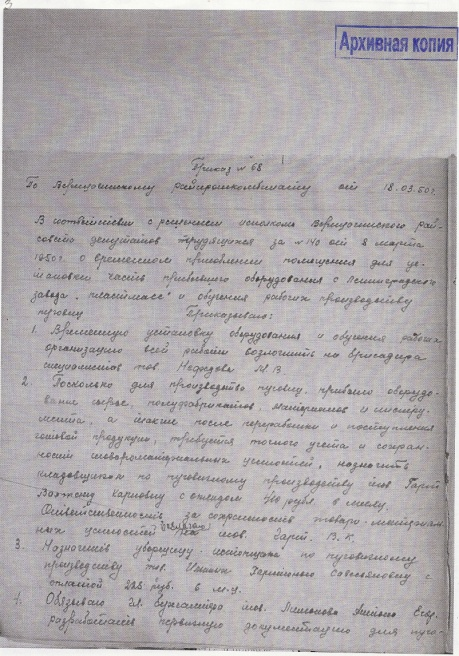 Архивная копия
Приказ № 68
По Верещагинскому райпромкомбинату от 18.03.50г.
В соответствии с решением исполкома Верещагинского рай-
совета депутатов трудящихся за № 140 от 8 марта
1950г. о временном помещения для ус-
тановки части прибывшего оборудования с Ленинградского
завода "пластмасс" и обучения рабочих производству
пуговиц Приказываю:
1. Временную установку оборудования и обучения рабочих
организацию всей работы возложить на бригадира
специалистов тов. М.В.
2. Поскольку для производства пуговиц прибыло оборудо-
вание сырье, полуфабрикатов, материалов и инстру-
мента, а также после переработки и поступления
готовой продукции, требуется точного учета и сохран-
ности товароматериальных ценностей, назначить
кладовщиком по пуговичному производству тов. Гарт
Карловну с окладом рубл. в месяц.
Ответственность за сохранность товаро-материаль-
ных ценностей тов. Гарт. В.К.
3. Назначить уборщицу-истопщика по пуговичному
производству тов. Савельевну с
оплатой 225 руб. в м-ц.
4. Обязываю гл. бухгалтера тов.
разработать первичную документацию для пуго-